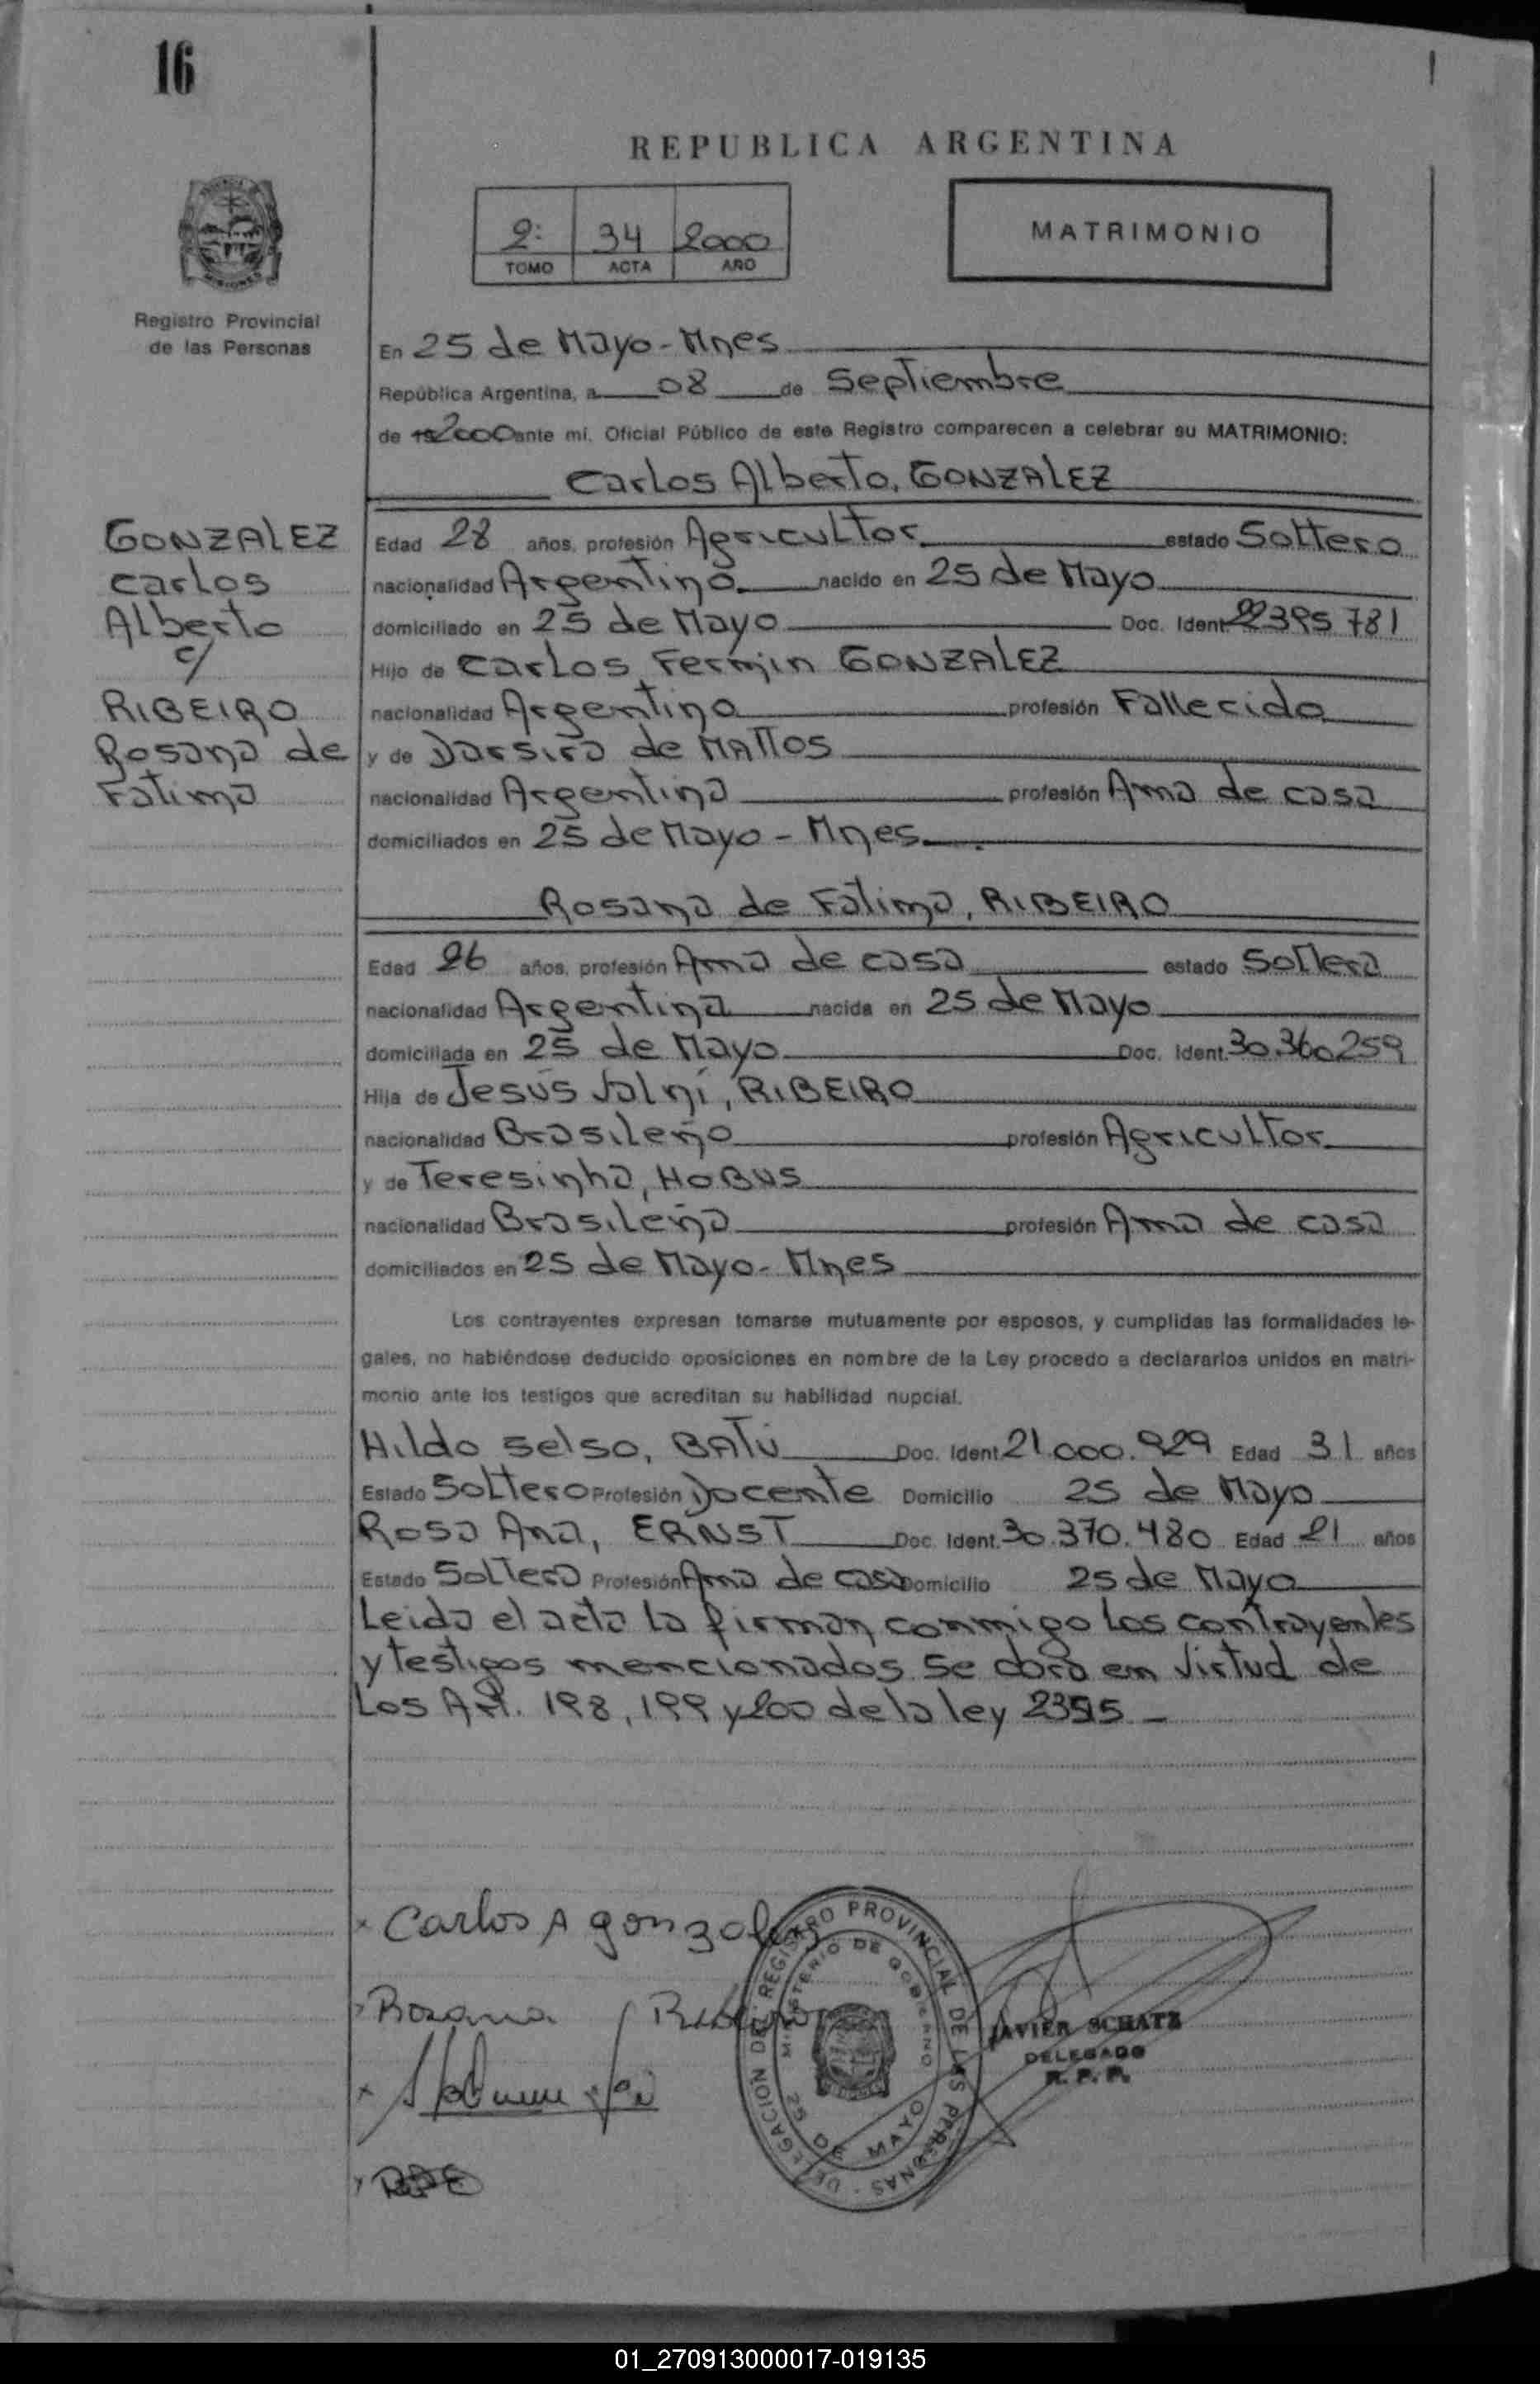 16
REPUBLICA ARGENTINA
2: 34 2000
TOMO ACTA AÑO
MATRIMONIO
Registro Provincial
de las Personas
En 25 de Mayo - Mnes
República Argentina, a 08 de Septiembre
de 19 2000 ante mí. Oficial Público de este Registro comparecen a celebrar su MATRIMONIO:
Carlos Alberto, GONZALEZ
GONZALEZ
Carlos
Alberto
c/
RIBEIRO
Rosana de
Fatima
Edad 28 años, profesión Agricultor estado Soltero
nacionalidad Argentino nacido en 25 de Mayo
domiciliado en 25 de Mayo Doc. Ident. 22395781
Hijo de Carlos Fermin GONZALEZ
nacionalidad Argentino profesión Fallecido
y de Darsira de MATTOS
nacionalidad Argentina profesión Ama de casa
domiciliados en 25 de Mayo - Mnes
Rosana de Fatima, RIBEIRO
Edad 26 años, profesión Ama de casa estado Soltera
nacionalidad Argentina nacida en 25 de Mayo
domiciliada en 25 de Mayo Doc. Ident. 30.360259
Hija de Jesús Valni, RIBEIRO
nacionalidad Brasileño profesión Agricultor
y de Teresinha, HOBUS
nacionalidad Brasileña profesión Ama de casa
domiciliados en 25 de Mayo - Mnes
Los contrayentes expresan tomarse mutuamente por esposos, y cumplidas las formalidades le-
gales, no habiéndose deducido oposiciones en nombre de la Ley procedo a declararlos unidos en matri-
monio ante los testigos que acreditan su habilidad nupcial.
Hildo Selso, BATÚ Doc. Ident. 21.000.929 Edad 31 años
Estado Soltero Profesión Docente Domicilio 25 de Mayo
Rosa Ana, ERNST Doc. Ident. 30.370.480 Edad 21 años
Estado Soltera Profesión Ama de casa Domicilio 25 de Mayo
Leida el acta la firman conmigo los contrayentes
y testigos mencionados se obro em virtud de
Los Art. 198, 199 y 200 de la ley 2395 -
Carlos A gonzalez
Rosana Ribeiro
DELEGACION DEL REGISTRO PROVINCIAL DE LAS PERSONAS
MINISTERIO DE GOBIERNO
25 DE MAYO
JAVIER SCHATZ
DELEGADO
R. P. P.
01_270913000017-019135